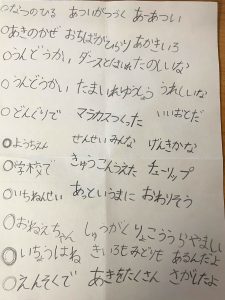 ○なつのひる あついがつづく あーあつい
○あきのかぜ おちばがひらり あかきいろ
○うんどうかい ダンスとはしれ たのしいな
○うんどうかい たまいれゆうしょう うれしいな
○どんぐりで マラカスつくった いいおとだ
○ようちえん せんせいみんな げんきかな
○学校で きゅうこんうえた チューリップ
○いちねんせい あっというまに おわりそう
○おねえちゃん しゅうがくりょこう うらやましい
◎いちょうはね きいろもみどりも あるんだよ
◎えんそくで あきをたくさん さがしたよ